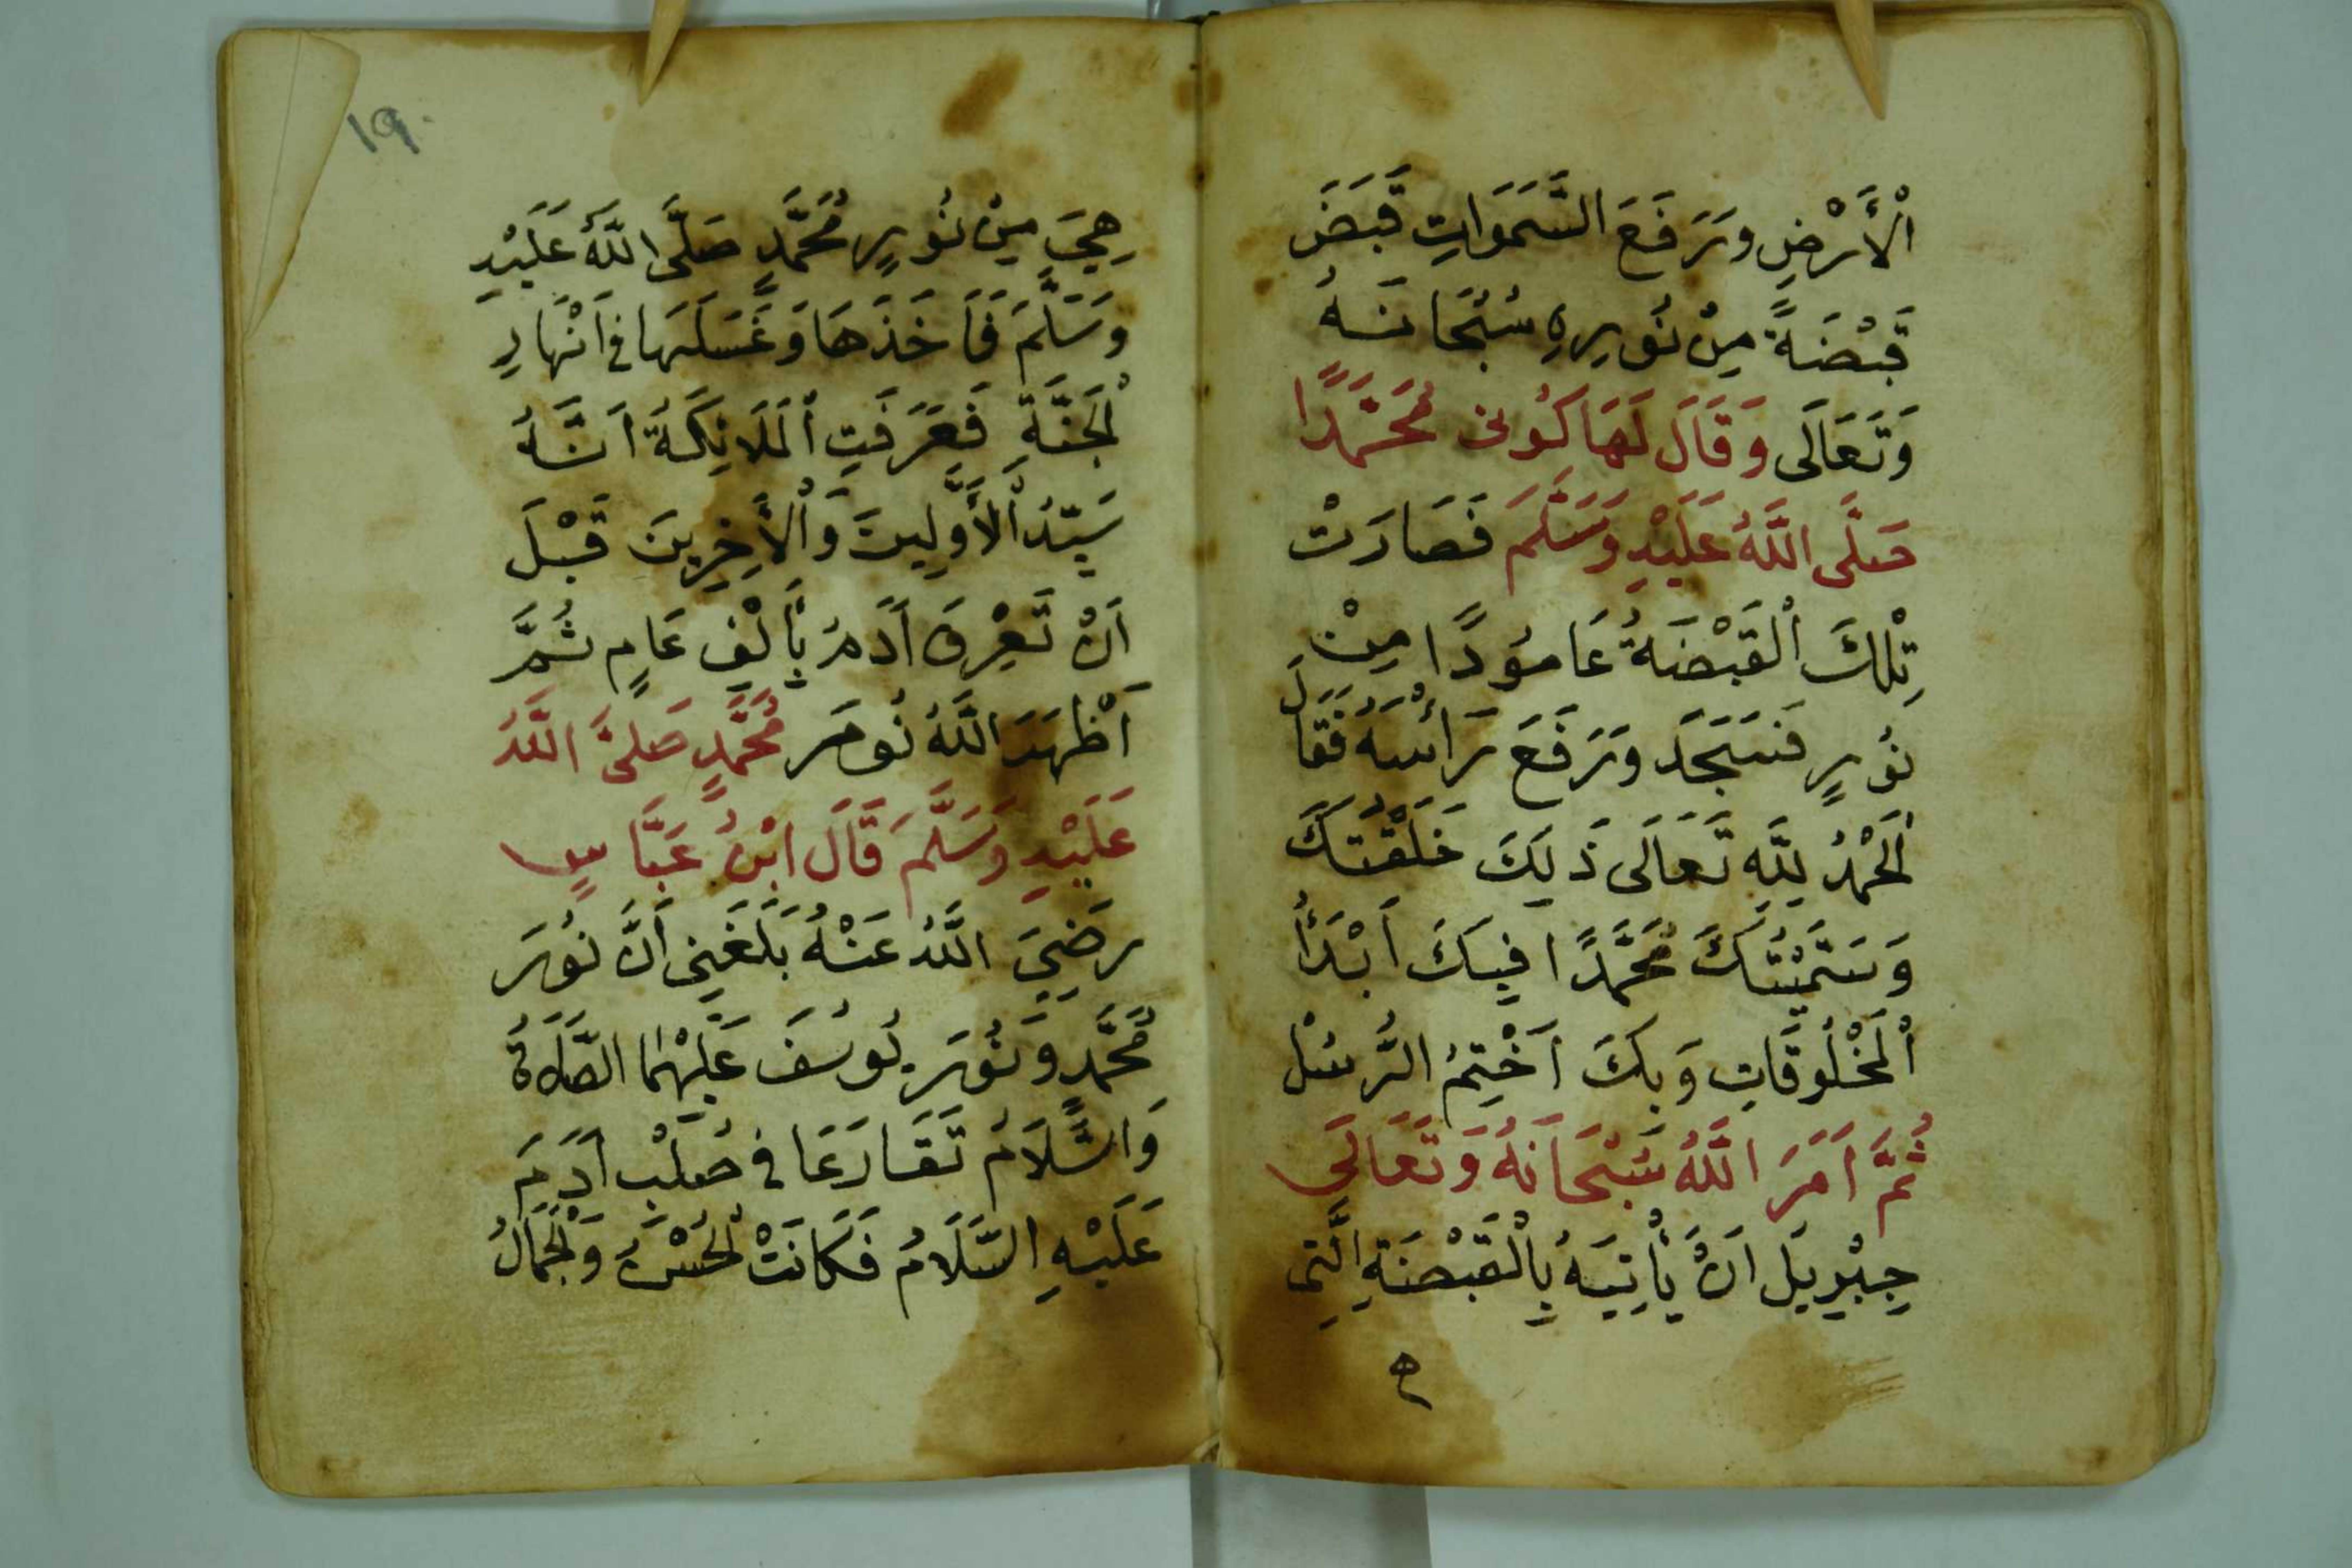 اْلأَرْضِ وَرَفَعَ السَّمَوَاتِ قَبَضَ
قَبْضَةً مِنْ نُورِهِ سُبْحَانَهُ
وَتَعَالَى وَقَالَ لَهَا كُونِى مُحَمَّدًا
صَلَّى اللَّهُ عَلَيْهِ وَسَلَّمَ فَصَارَتْ
تِلْكَ اْلقَبْضَةُ عَامُودًا مِنْ
نُورٍ فَسَجَدَ وَرَفَعَ رَأْسَهُ فَقَالَ
اْلحَمْدُ لِلَّهِ تَعَالَى ذَلِكَ خَلَقْتُكَ
وَسَمَّيْتُكَ مُحَمَّدًا فِيكَ اَبْدَأُ
اْلمَخْلُوقَاتِ وَبِكَ اَخْتِمُ الرُّسُلْ
ثُمَّ اَمَرَ اللَّهُ سُبْحَانَهُ وَتَعَالَى
جِبْرِيلَ اَنْ يَأْتِيَهُ بِاْلقَبْضَةِ الَّتِى
١٩
هِيَ مِنْ نُورِ مُحَمَّدٍ صَلَّى اللَّهُ عَلَيْهِ
وَسَلَّمَ فَاَخَذَهَا وَغَسَلَهَا فِى اَنْهَارِ
اْلجَنَّةِ فَعَرَفَتِ اْلمَلَائِكَةُ اَنَّهُ
سَيِّدُ اْلأَوَّلِينَ وَاْلأَخِرِينَ قَبْلَ
اَنْ تَعْرِفَ اَدَمُ بِأَلْفِ عَامٍ ثُمَّ
اَظْهَرَ اللَّهُ نُورَ مُحَمَّدٍ صَلَّى اللَّهُ
عَلَيْهِ وَسَلَّمَ قَالَ ابْنُ عَبَّاسٍ
رَضِيَ اللَّهُ عَنْهُ بَلَغَنِى اَنَّ نُورَ
مُحَمَّدٍ وَنُورَ يُوسُفَ عَلَيْهِمَا الصَّلَاةُ
وَالسَّلَامُ تَقَارَعَا فِى صُلْبِ اَدَمَ
عَلَيْهِ السَّلَامُ فَكَانَتْ اْلحُسْنُ وَاْلجَمَالُ